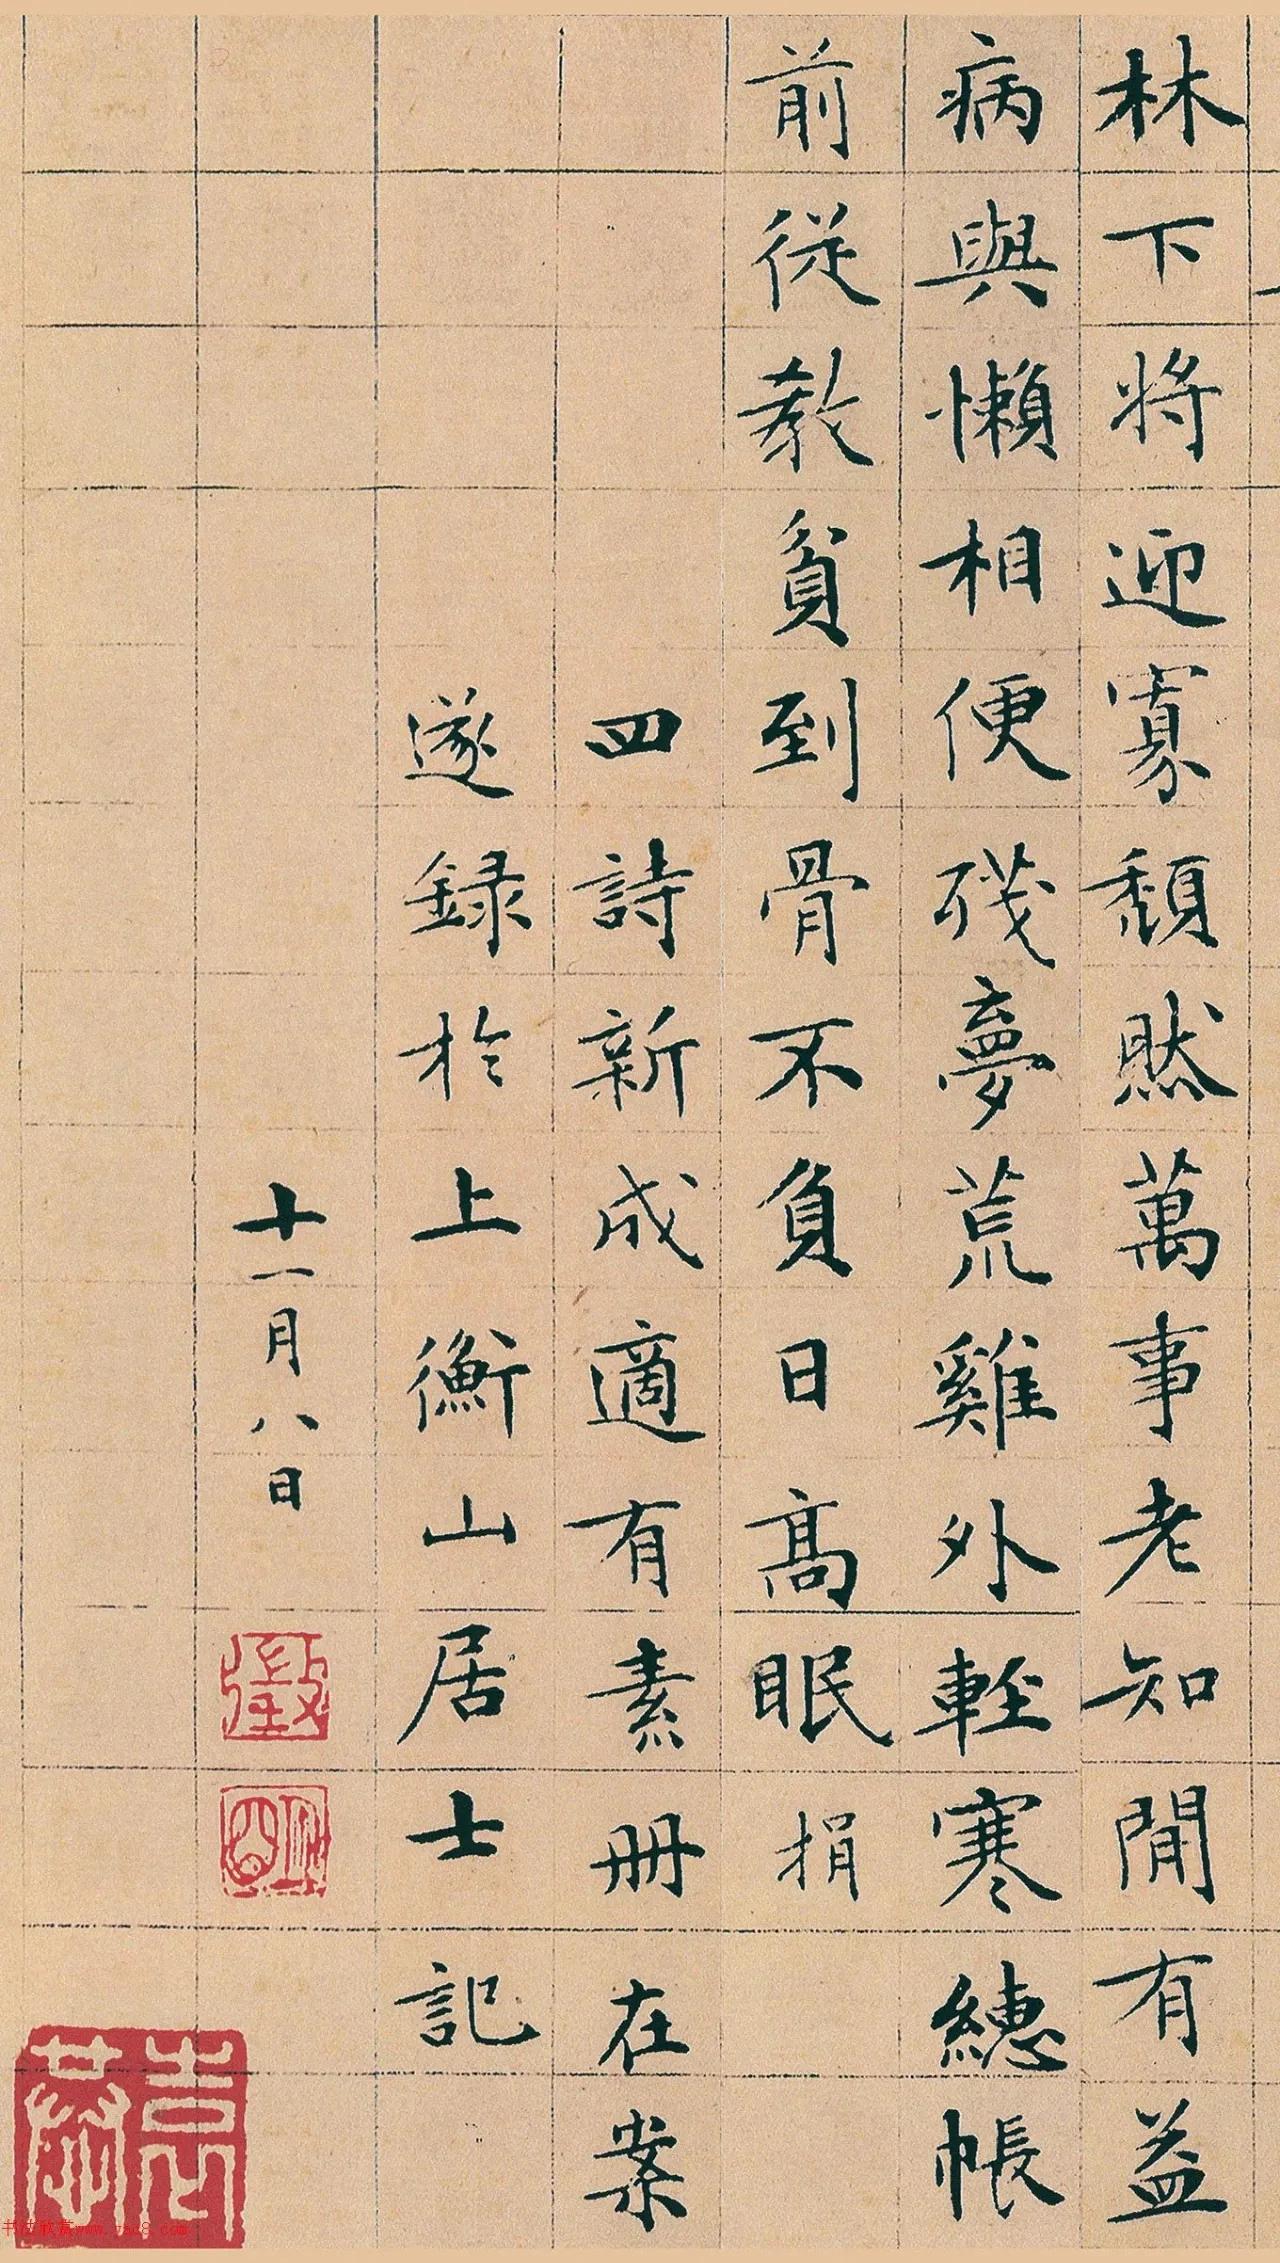 林下將迎寡頹然萬事老知閒有益
病與懶相便殘夢荒雞外輕寒繐帳
前從教貧到骨不負日高眠捐
四詩新成適有素冊在案
遂録於上衡山居士記
十一月八日
徵
明